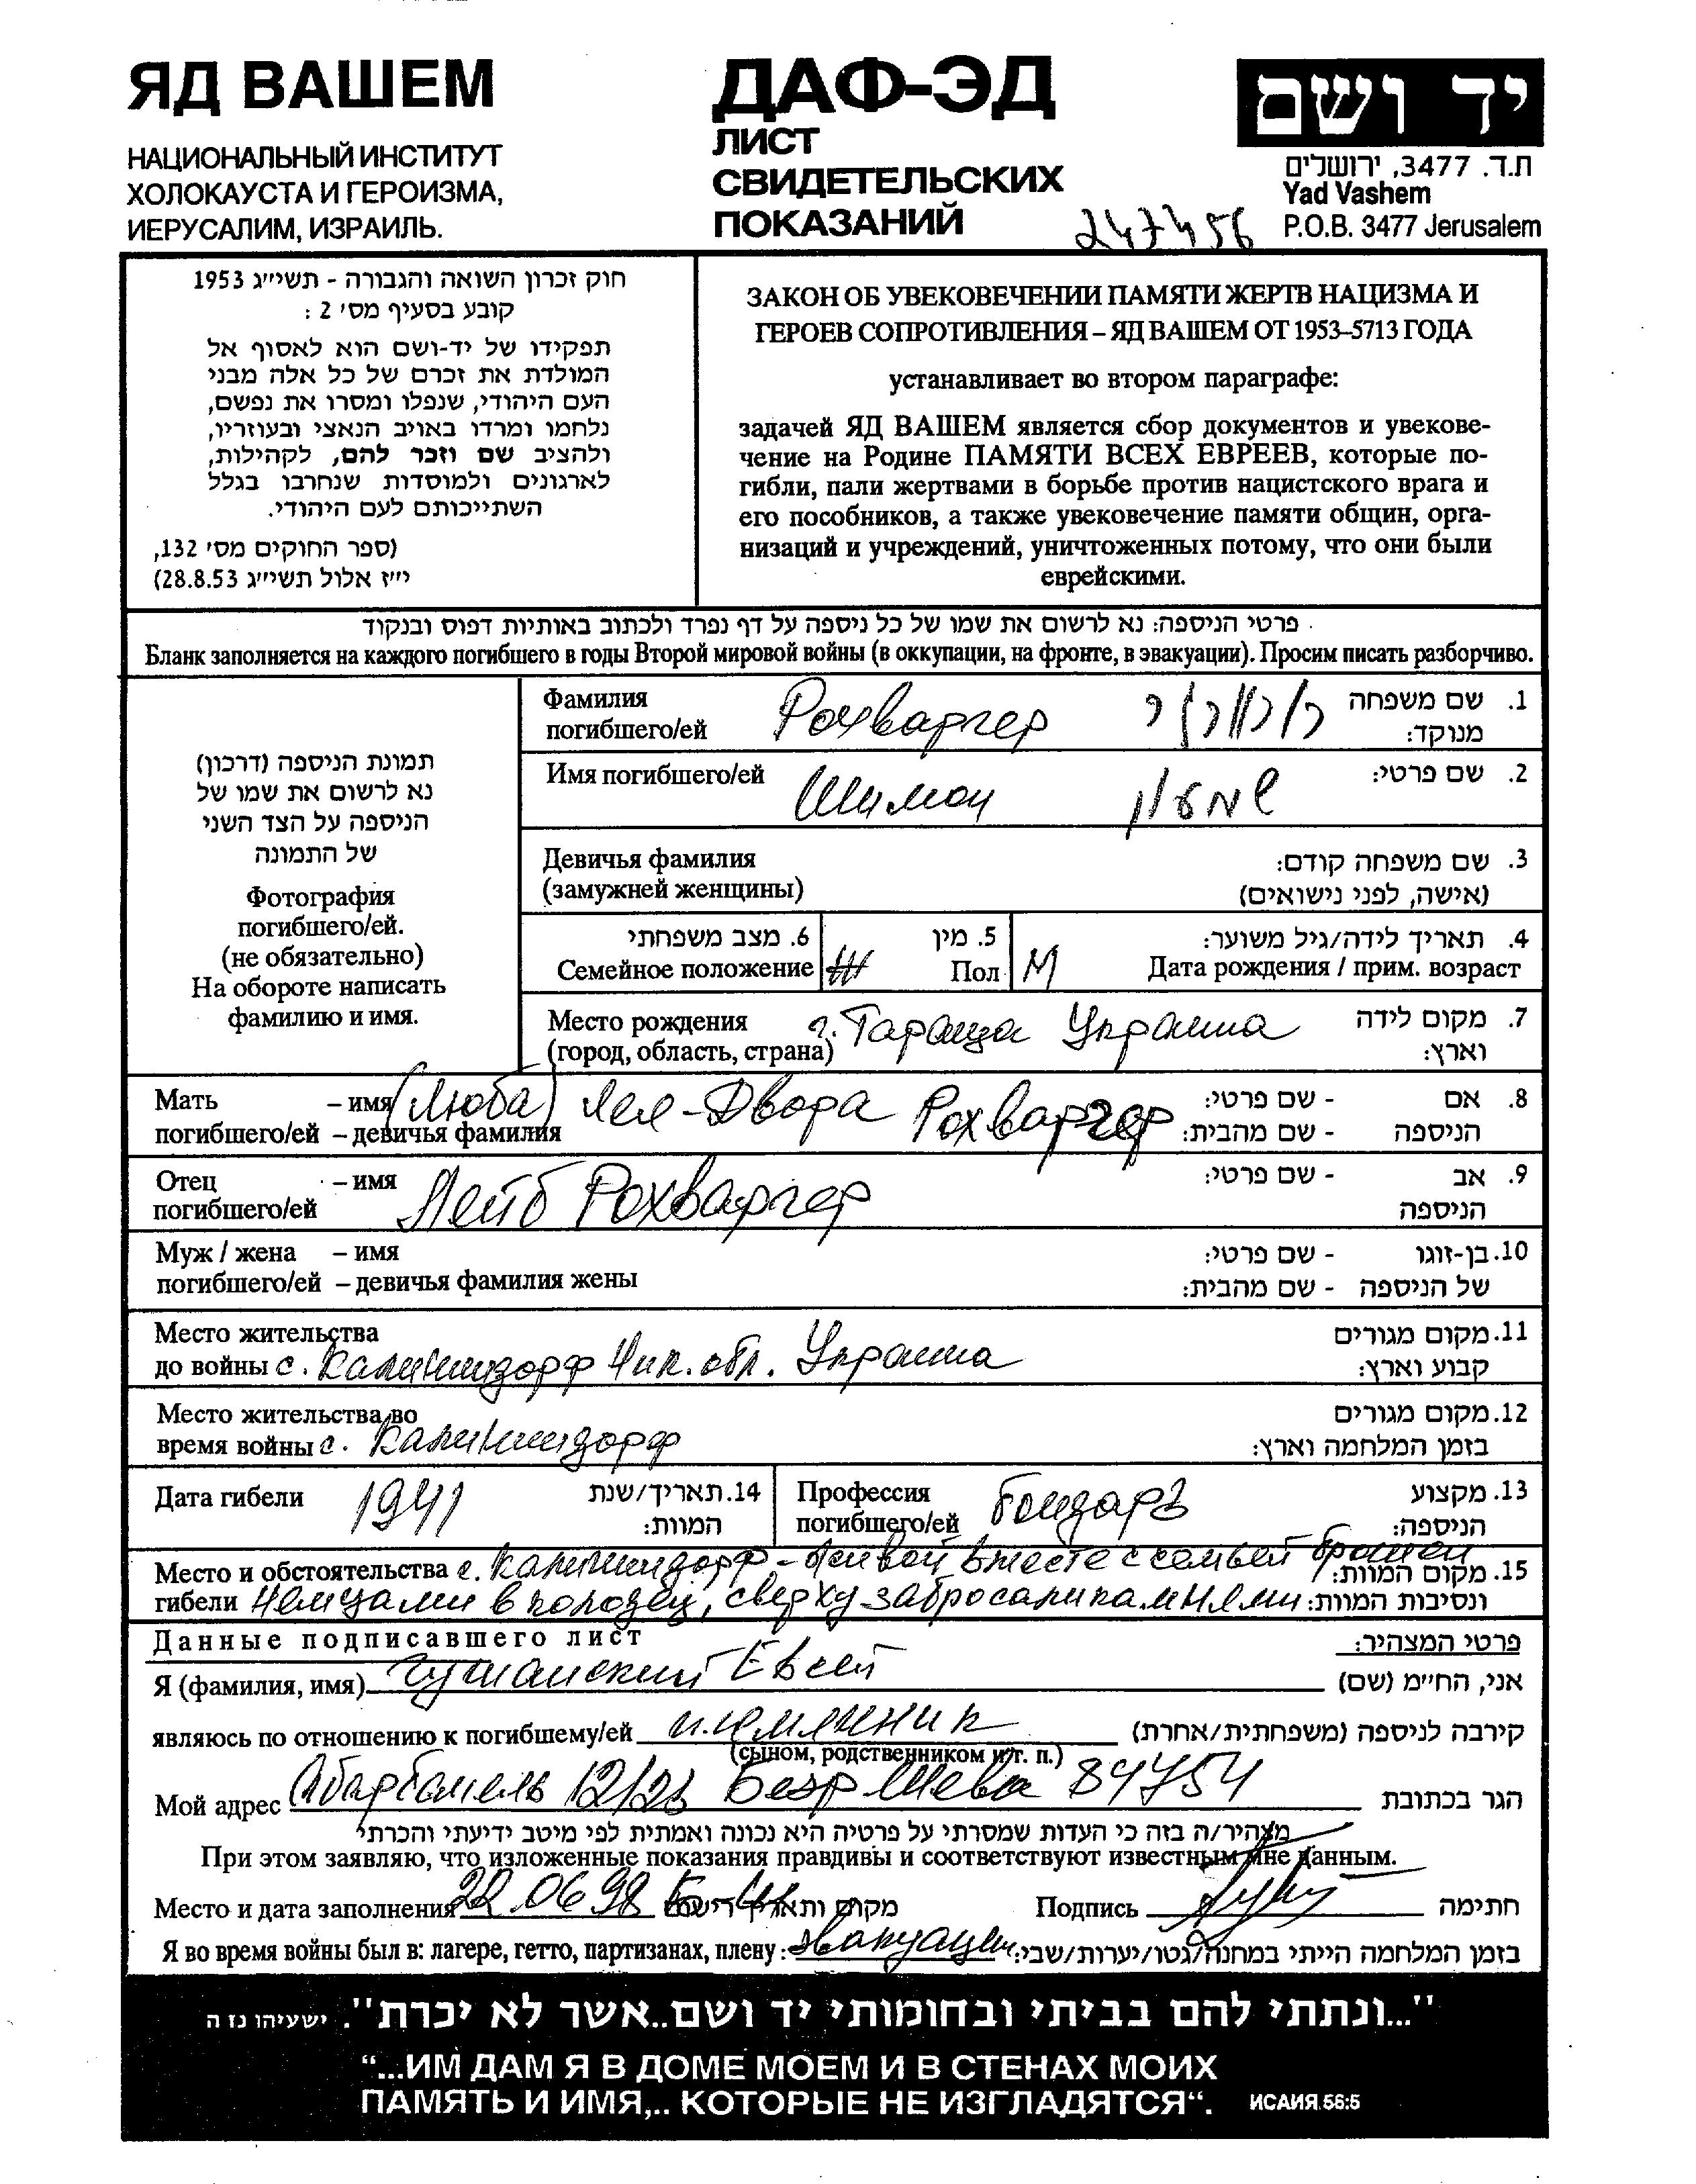 ЯД ВАШЕМ
НАЦИОНАЛЬНЫЙ ИНСТИТУТ
ХОЛОКАУСТА И ГЕРОИЗМА,
ИЕРУСАЛИМ, ИЗРАИЛЬ.
ДАФ-ЭД
ЛИСТ
СВИДЕТЕЛЬСКИХ
ПОКАЗАНИЙ
247456
יד ושם
ת.ד. 3477, ירושלים
Yad Vashem
P.O.B. 3477 Jerusalem
חוק זכרון השואה והגבורה - תשי״ג 1953
קובע בסעיף מס׳ 2 :
תפקידו של יד-ושם הוא לאסוף אל
המולדת את זכרם של כל אלה מבני
העם היהודי, שנפלו ומסרו את נפשם,
נלחמו ומרדו באויב הנאצי ובעוזריו,
ולהציב שם וזכר להם, לקהילות,
לארגונים ולמוסדות שנחרבו בגלל
השתייכותם לעם היהודי.
(ספר החוקים מס׳ 132,
י״ז אלול תשי״ג 28.8.53)
ЗАКОН ОБ УВЕКОВЕЧЕНИИ ПАМЯТИ ЖЕРТВ НАЦИЗМА И
ГЕРОЕВ СОПРОТИВЛЕНИЯ – ЯД ВАШЕМ ОТ 1953–5713 ГОДА
устанавливает во втором параграфе:
задачей ЯД ВАШЕМ является сбор документов и увекове-
чение на Родине ПАМЯТИ ВСЕХ ЕВРЕЕВ, которые по-
гибли, пали жертвами в борьбе против нацистского врага и
его пособников, а также увековечение памяти общин, орга-
низаций и учреждений, уничтоженных потому, что они были
еврейскими.
פרטי הניספה: נא לרשום את שמו של כל ניספה על דף נפרד ולכתוב באותיות דפוס ובנקוד
Бланк заполняется на каждого погибшего в годы Второй мировой войны (в оккупации, на фронте, в эвакуации). Просим писать разборчиво.
תמונת הניספה (דרכון)
נא לרשום את שמו של
הניספה על הצד השני
של התמונה
Фотография
погибшего/ей.
(не обязательно)
На обороте написать
фамилию и имя.
Фамилия
погибшего/ей Рохваргер
1. שם משפחה
מנוקד:
Имя погибшего/ей Шимон שמעון 2. שם פרטי:
Девичья фамилия
(замужней женщины)
3. שם משפחה קודם:
(אישה, לפני נישואים)
6. מצב משפחתי
Семейное положение
5. מין
Пол М
4. תאריך לידה/גיל משוער:
Дата рождения / прим. возраст
Место рождения г. Тараща Украина
(город, область, страна)
7. מקום לידה
וארץ:
Мать – имя (Люба) Лея-Двора Рохваргер
погибшего/ей – девичья фамилия
8. אם - שם פרטי:
הניספה - שם מהבית:
Отец – имя
погибшего/ей Лейб Рохваргер
9. אב - שם פרטי:
הניספה
Муж / жена – имя
погибшего/ей – девичья фамилия жены
10. בן-זוגו - שם פרטי:
של הניספה - שם מהבית:
Место жительства
до войны с. Калининдорф Ник. обл. Украина
11. מקום מגורים
קבוע וארץ:
Место жительства во
время войны с. Калининдорф
12. מקום מגורים
בזמן המלחמה וארץ:
Дата гибели 1941
14. תאריך/שנת
המוות:
Профессия
погибшего/ей Бондарь
13. מקצוע
הניספה:
Место и обстоятельства с. Калининдорф - живой вместе с семьей брошен
гибели немцами в колодец, сверху забросали камнями
15. מקום המוות:
ונסיבות המוות:
Данные подписавшего лист
פרטי המצהיר:
Я (фамилия, имя) Евсей אני, החי״מ (שם)
являюсь по отношению к погибшему/ей племянник קירבה לניספה (משפחתית/אחרת)
(сыном, родственником и т. п.)
Мой адрес Абарбанель 12/23 Беэр Шева 84754 הגר בכתובת
מצהיר/ה בזה כי העדות שמסרתי על פרטיה היא נכונה ואמתית לפי מיטב ידיעתי והכרתי
При этом заявляю, что изложенные показания правдивы и соответствуют известным мне данным.
Место и дата заполнения 22.06.98 מקום ותאריך רישום Подпись חתימה
Я во время войны был в: лагере, гетто, партизанах, плену: эвакуации בזמן המלחמה הייתי במחנה/גטו/יערות/שבי:
"...ונתתי להם בביתי ובחומותי יד ושם..אשר לא יכרת". ישעיהו נז ה
“...ИМ ДАМ Я В ДОМЕ МОЕМ И В СТЕНАХ МОИХ
ПАМЯТЬ И ИМЯ,.. КОТОРЫЕ НЕ ИЗГЛАДЯТСЯ“. ИСАИЯ 56:5